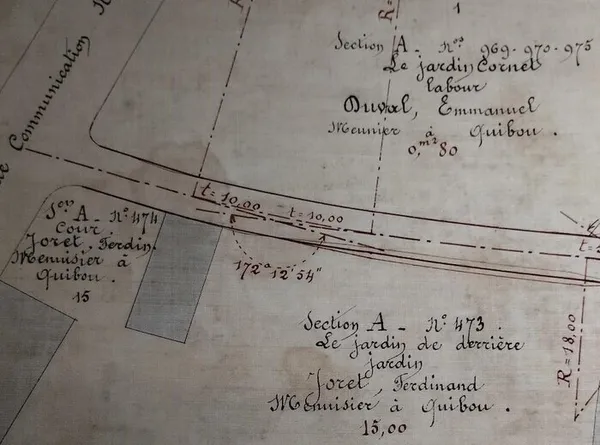 1
R=
Section A - Nos 969-970-975
Le jardin Cornet
labour
Duval, Emmanuel
Meunier à Quibou.
0,m2 80
Communication
t = 10,00
t = 10,00
172° 12' 54"
Son A - No 474
Cour.
Joret. Ferdin.
Menuisier à
Quibou.
15
Section A - No 473.
Le jardin de derrière
jardin
Joret, Ferdinand
Menuisier à Quibou.
15,00
R = 18,00
t =